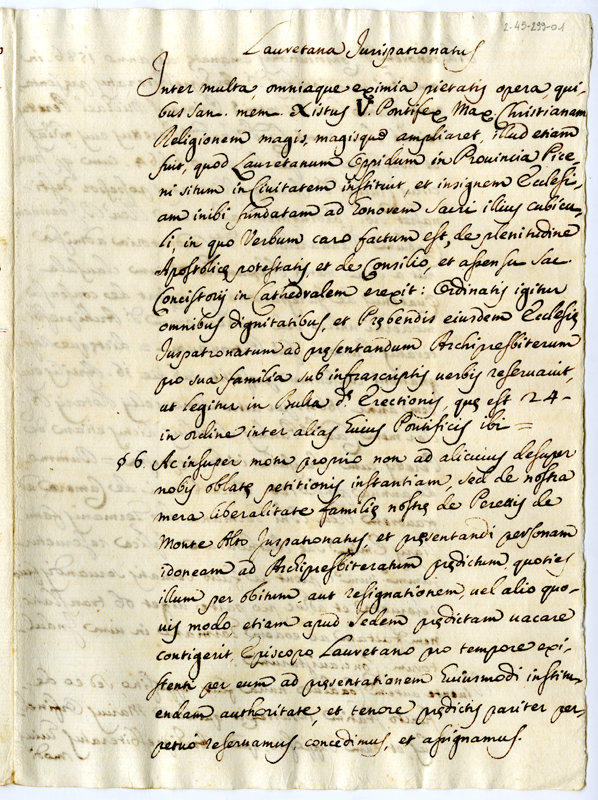 2-45-299-01
Lauretana Jurispatronatus
Inter multa omniaque eximia pietatis opera qui-
bus san. mem. Xistus V. Pontifex Max Christianam
Religionem magis, magisque ampliaret, illud etiam
fuit, quod Lauretanum Oppidum in Provincia Pice-
ni situm in Civitatem instituit, et insignem Ecclesi-
am inibi fundatam ad honorem sacri illius cubicu-
li, in quo Verbum caro factum est, de plenitudine
Apostolicę potestatis, et de Consilio, et assensu sac.
Concistorij in Cathedralem erexit: Ordinatis igitur
omnibus dignitatibus, et Prębendis eiusdem Ecclesię
Juspatronatum ad pręsentandum Archipresbiterum
pro sua familia sub infrascriptis verbis reservavit,
ut legitur in Bulla dᵃ. Erectionis, quę est 24-
in ordine inter alias huius Pontificis ibi =
§ 6. Ac insuper motu proprio non ad alicuius desuper
nobis oblatę petitionis instantiam, sed de nostra
mera liberalitate familię nostrę de Perettis de
Monte Alto Juspatronatus, et pręsentandi personam
idoneam ad Archipresbiteratum prędictum, quoties
illum per obitum, aut resignationem, vel alio quo-
vis modo etiam apud sedem prędictam vacare
contigerit, Episcopo Lauretano pro tempore exi-
stenti per eum ad pręsentationem huiusmodi institu-
endam authoritate, et tenore prędictis pariter per-
petuo reservamus, concedimus, et assignamus.